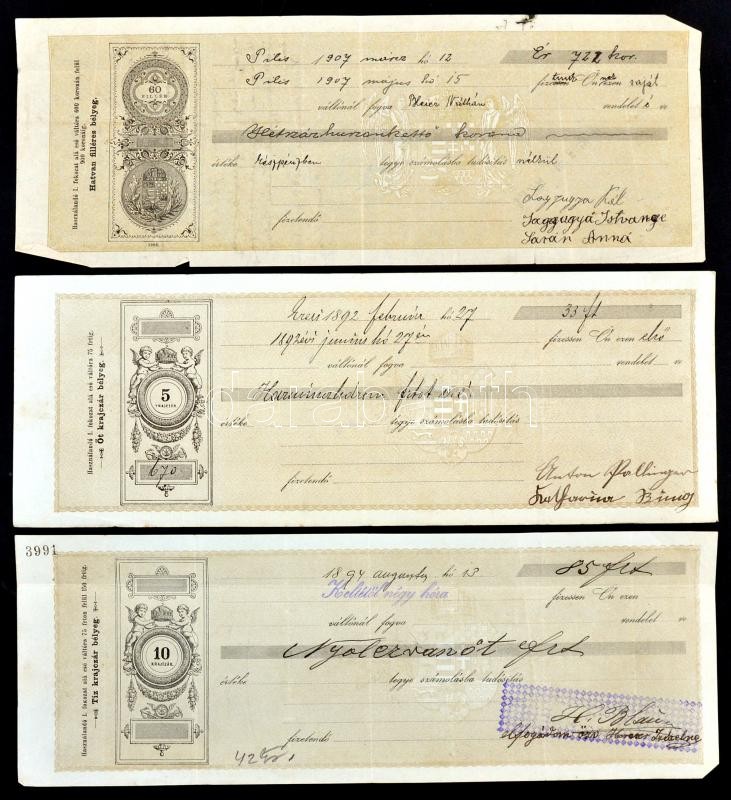 Használandó I. fokozat alá eső váltóra 600 koronán felül
900 koronáig.
Hatvan filléres bélyeg.
60
FILLÉR
Pilis 1907 marcz hó 12
Ér 722 kor.
Pilis 1907 május hó 15
fizessen Ön ezen saját
váltónál fogva
rendelet é
Hétszázhuszonkettő korona
értéke készpénzben
tegye számolásba tudósítás nélkül
fizetendő
Sarán Anna
Használandó I. fokozat alá eső váltóra 75 frtig.
Öt krajczár bélyeg.
5
KRAJCZÁR
670
1892 február hó 27
33 ft
1892 évi junius hó 27én
fizessen Ön ezen első
váltónál fogva
rendelet
Harminczhárom frtot
értéke
tegye számolásba tudósítás
fizetendő
Anton Pallinger
Katharina
3991
Használandó I. fokozat alá eső váltóra 75 frton felül 150 frtig.
Tíz krajczár bélyeg.
10
KRAJCZÁR
1894 augusztus hó 13
85 frt
Kelletől négy hóra
fizessen Ön ezen
váltónál fogva
rendelet
Nyolczvanöt frt
értéke
tegye számolásba tudósítás
H. Blau
fizetendő
elfogadom özv
darabanth